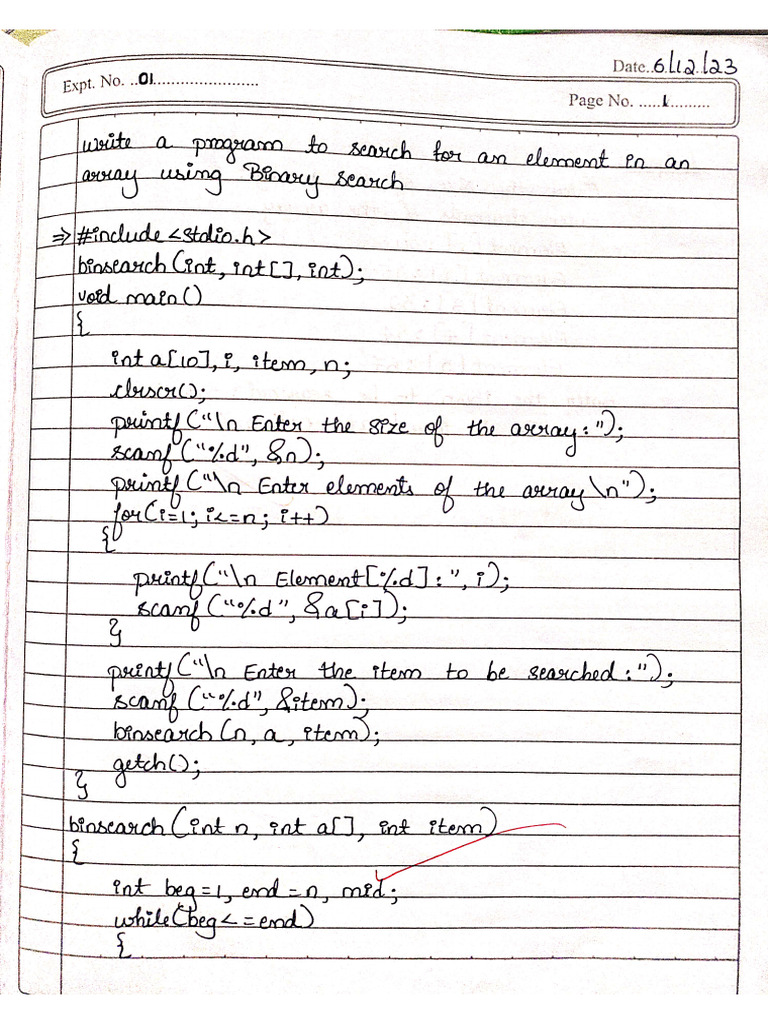 Date..6/12/23
Expt. No. ..01......................
Page No. .....1.........
write a program to search for an element in an
array using Binary search
⇒ #include <stdio.h>
binsearch(int, int[], int);
void main()
{
int a[10], i, item, n;
clrscr();
printf("\n Enter the size of the array:");
scanf("%d", &n);
printf("\n Enter elements of the array \n");
for(i=1; i<=n; i++)
{
printf("\n Element[%d]:", i);
scanf("%d", &a[i]);
}
printf("\n Enter the item to be searched:");
scanf("%d", &item);
binsearch(n, a, item);
getch();
}
binsearch(int n, int a[], int item)
{
int beg=1, end=n, mid;
while(beg<=end)
{